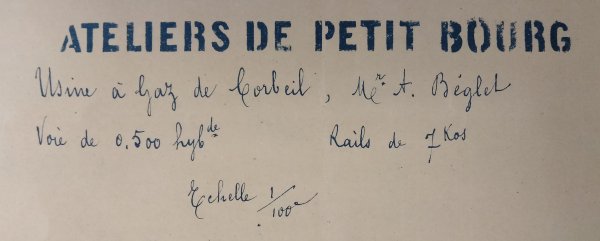 ATELIERS DE PETIT BOURG
Usine à Gaz de Corbeil, Mr A. Béglet
Voie de 0.500 hybde Rails de 7 Kos
Echelle 1/100e